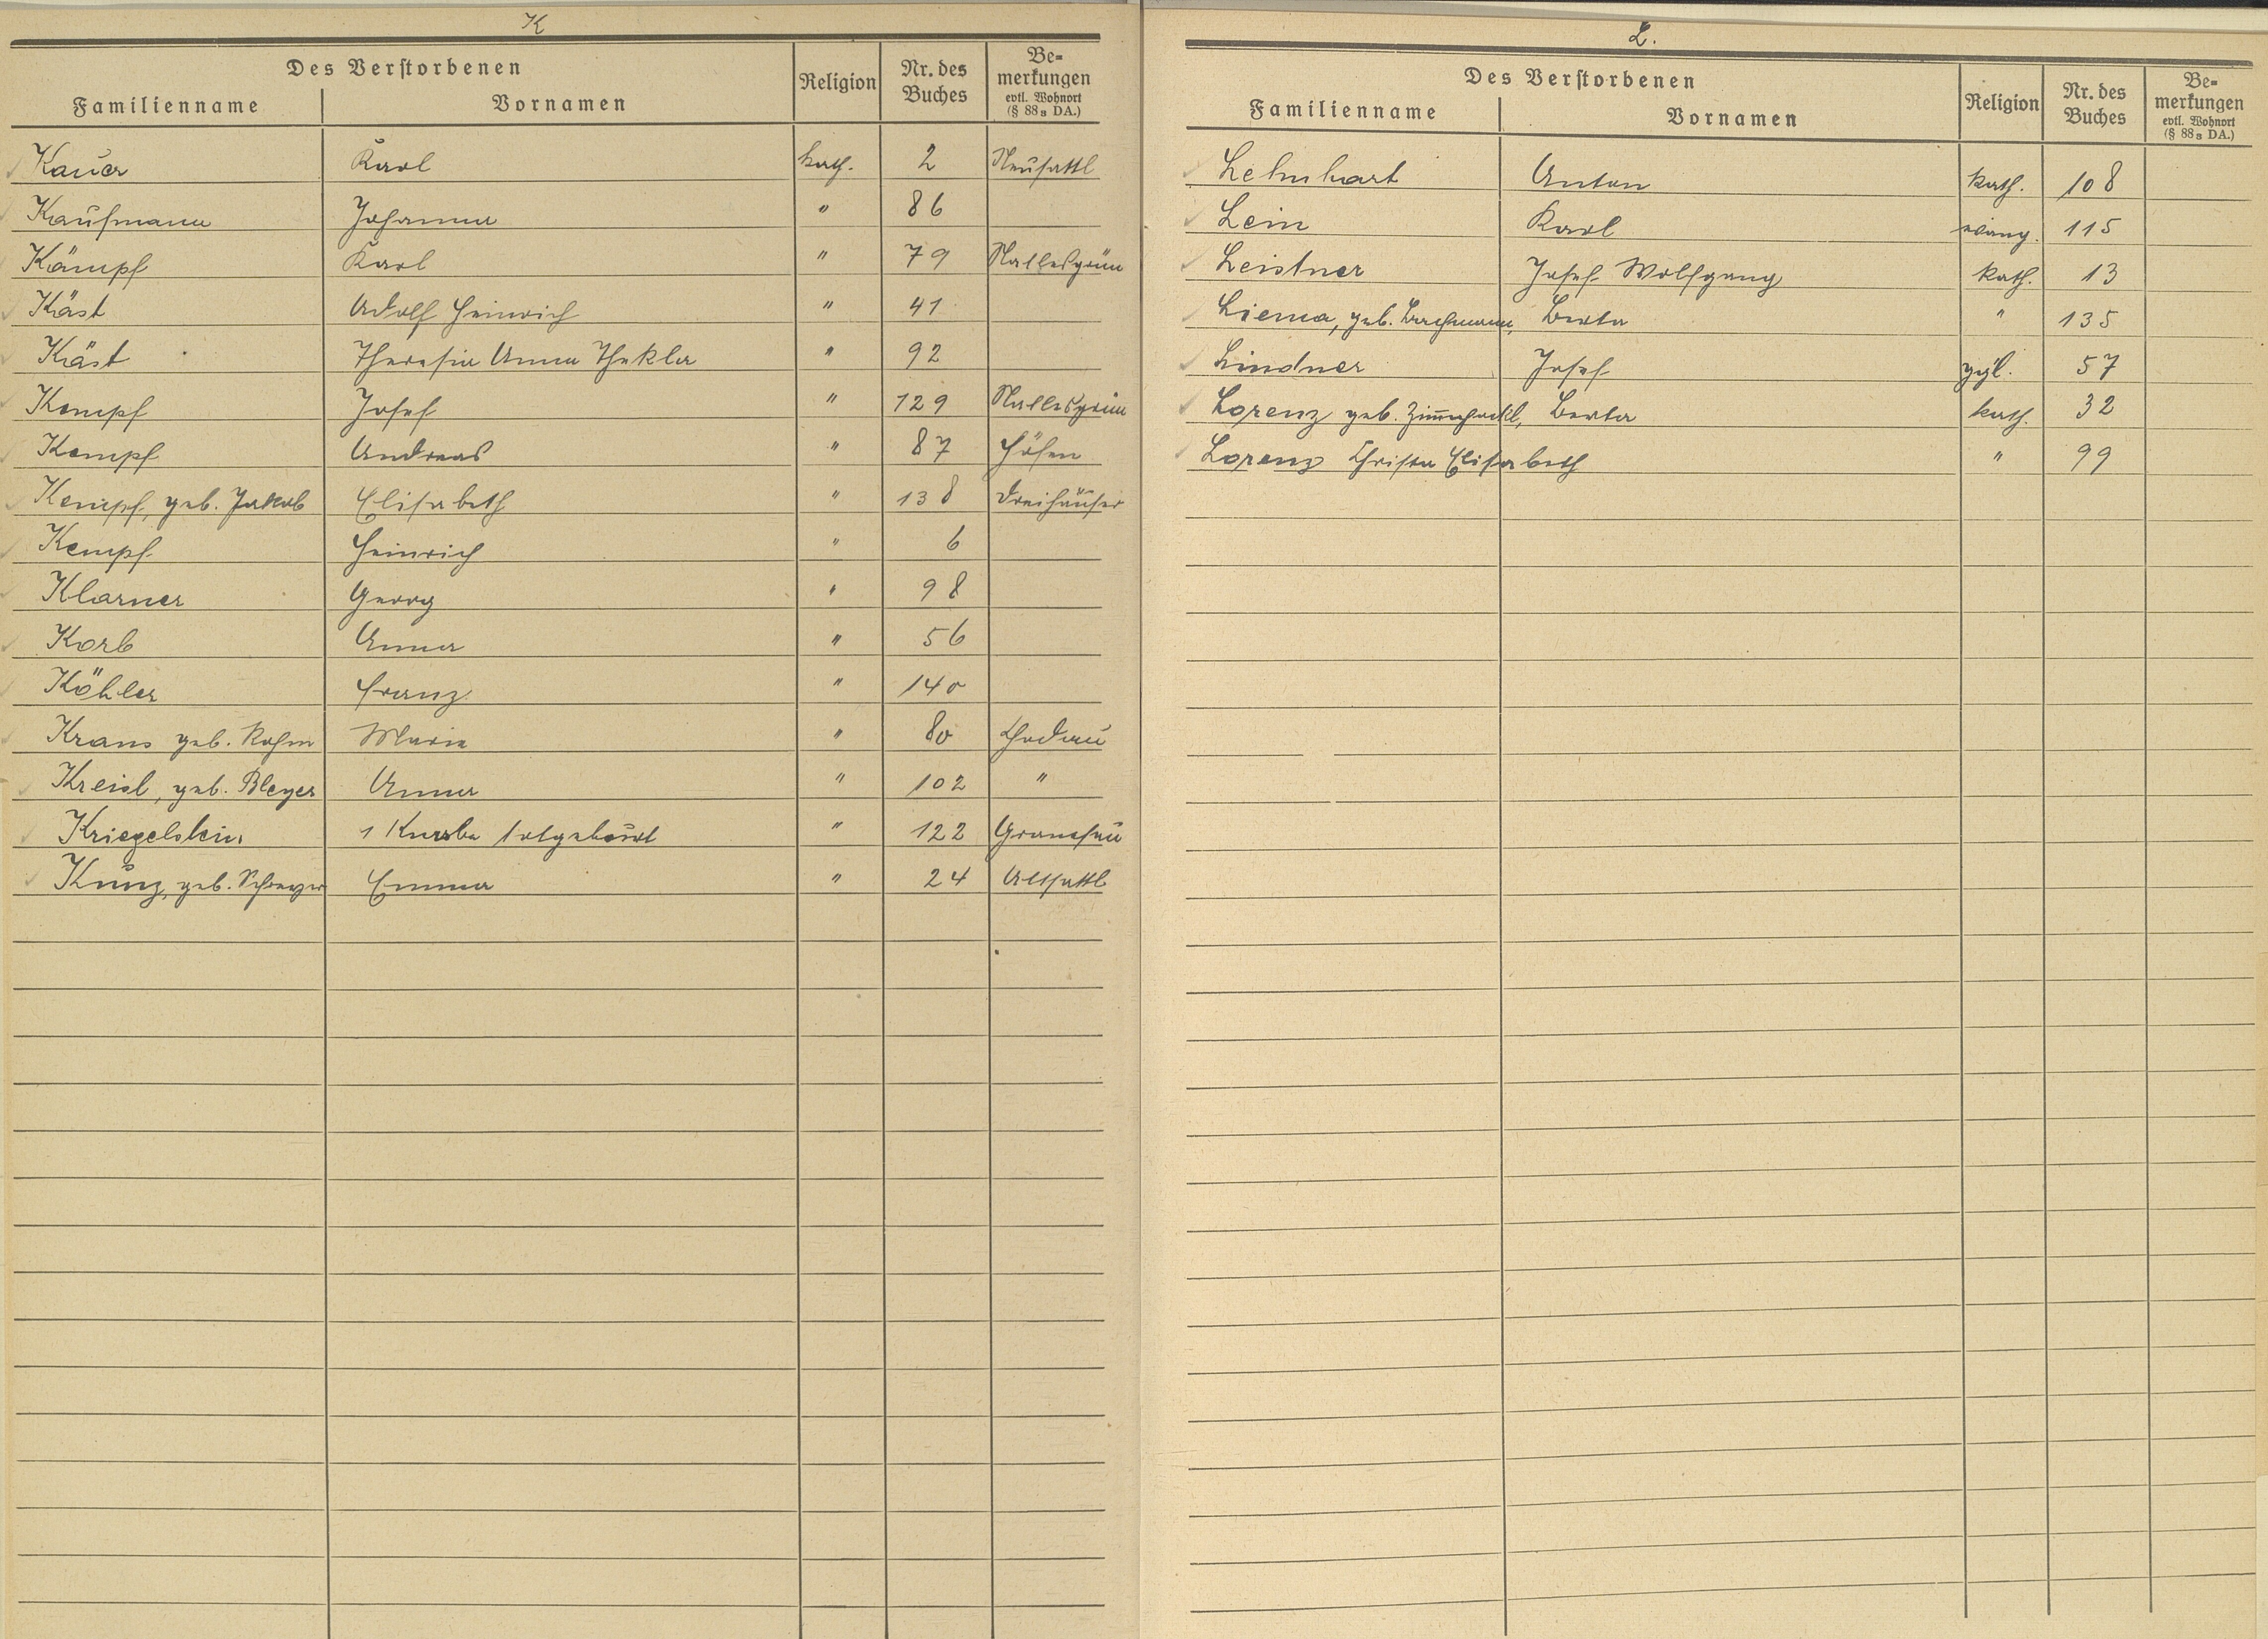 K
Des Verstorbenen
Religion
Nr. des Buches
Be-
merkungen
evtl. Wohnort
(§ 88 a DA.)
Familienname Vornamen
Kauer Karl kath. 2 Neusattl
Kaufmann Johanna " 86
Kämpf Karl " 79 Nallesgrün
Käst Adolf Heinrich " 41
Käst Theresia Anna Thekla " 92
Kempf Josef " 129 Nallesgrün
Kempf Andreas " 87 Höfen
Kempf, geb. Jakob Elisabeth " 138 Dreihäuser
Kempf Heinrich " 6
Klarner Georg " 98
Korb Anna " 56
Köhler Franz " 140
Kraus geb. Rahm Maria " 80 Chodau
Kreisl, geb. Bleyer Anna " 102 "
Kriegelstein 1 Knabe totgeburt " 122 Granesau
Kunz, geb. Emma " 24 Altsattl
L.
Des Verstorbenen
Religion
Nr. des Buches
Be-
merkungen
evtl. Wohnort
(§ 88 a DA.)
Familienname Vornamen
Lehnhart Anton kath. 108
Lein Karl evang. 115
Leistner Josef Wolfgang kath. 13
Liema, geb. Berta " 135
Lindner Josef ggl. 57
Lorenz geb. Berta kath. 32
Lorenz Christa Elisabeth " 99